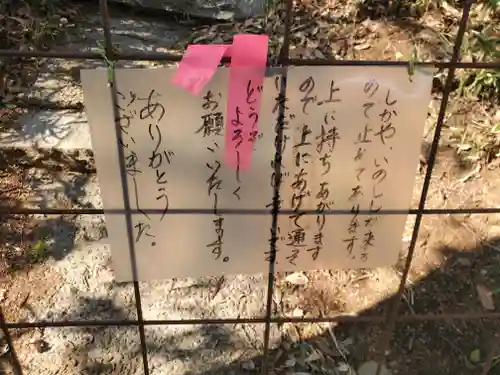 しかや いのししが来る
ので止めてあります。
上に持ち あがります
ので、上にあげて通って
いただけ です
どうぞ よろしく
お願いいたします。
ありがとう
ございました。